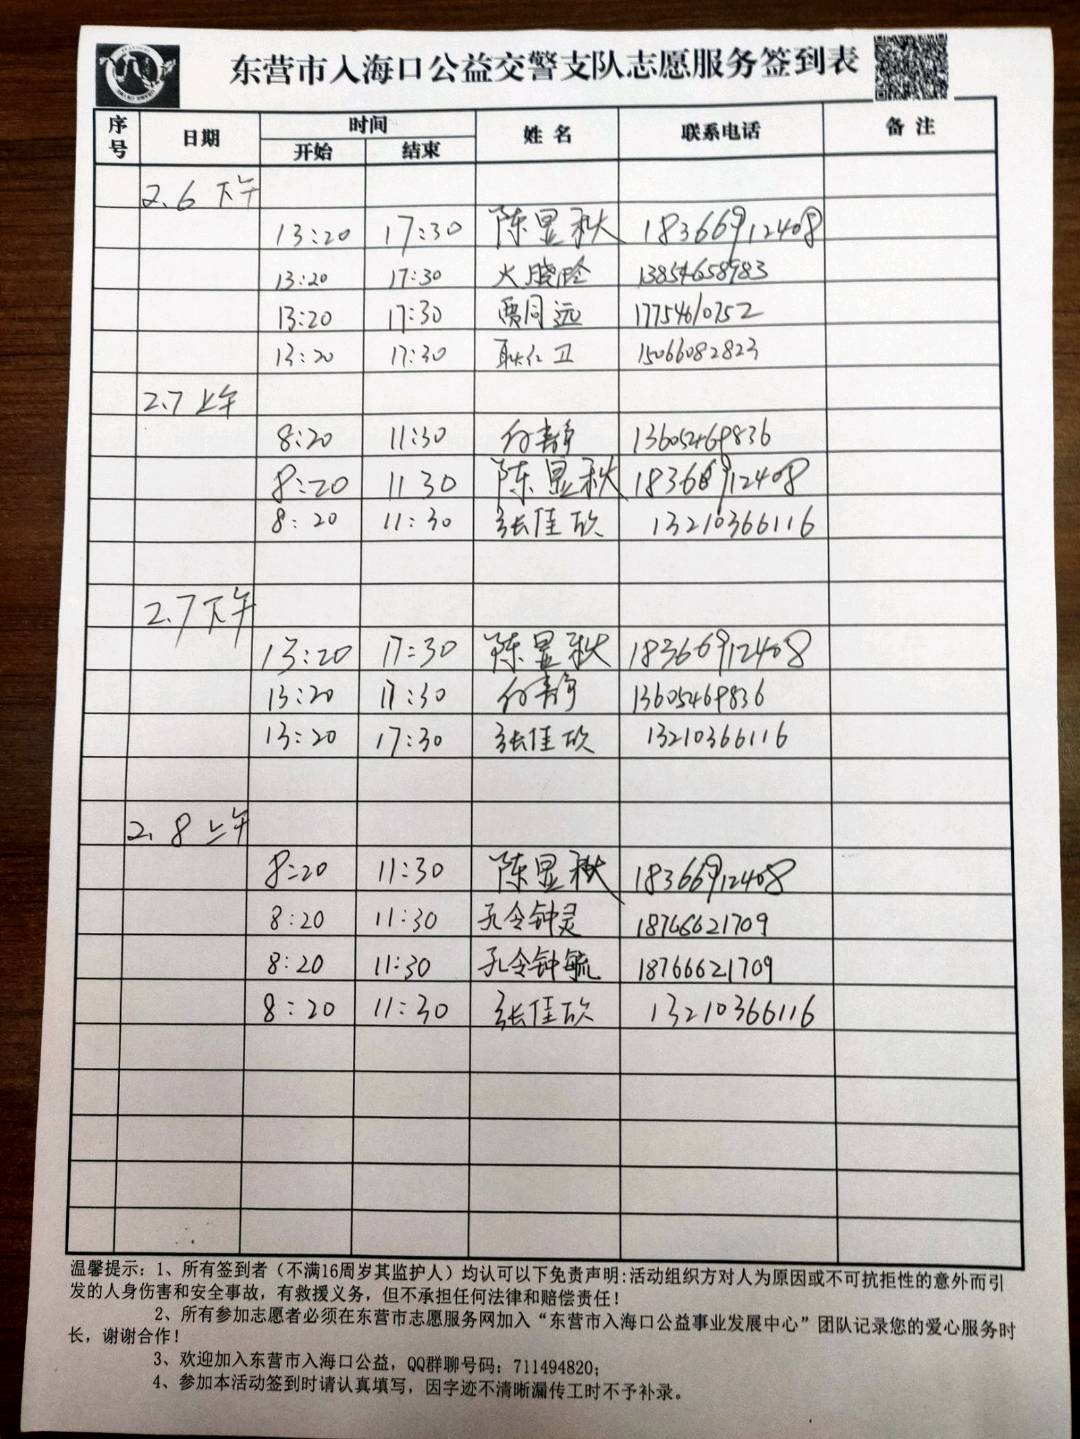 东营市入海口公益交警支队志愿服务签到表
序号 日期 时间 姓名 联系电话 备注
开始 结束
2.6 下午
13:20 17:30 陈显秋 18366912408
13:20 17:30 13854658983
13:20 17:30 贾同远 17754610752
13:20 17:30 耿仁卫 15066082823
2.7 上午
8:20 11:30 付静 13605469836
8:20 11 30 陈显秋 18366912408
8:20 11:30 张佳欣 13210366116
2.7 下午
13:20 17:30 陈显秋 18366912408
13:20 17:30 付静 13605469836
13:20 17:30 张佳欣 13210366116
2.8 上午
8:20 11:30 陈显秋 18366912408
8:20 11:30 孔令钟灵 18766621709
8:20 11:30 孔令钟毓 18766621709
8:20 11:30 张佳欣 13210366116
温馨提示：1、所有签到者（不满16周岁其监护人）均认可以下免责声明:活动组织方对人为原因或不可抗拒性的意外而引
发的人身伤害和安全事故，有救援义务，但不承担任何法律和赔偿责任！
2、所有参加志愿者必须在东营市志愿服务网加入“东营市入海口公益事业发展中心”团队记录您的爱心服务时
长，谢谢合作！
3、欢迎加入东营市入海口公益，QQ群聊号码：711494820；
4、参加本活动签到时请认真填写，因字迹不清晰漏传工时不予补录。